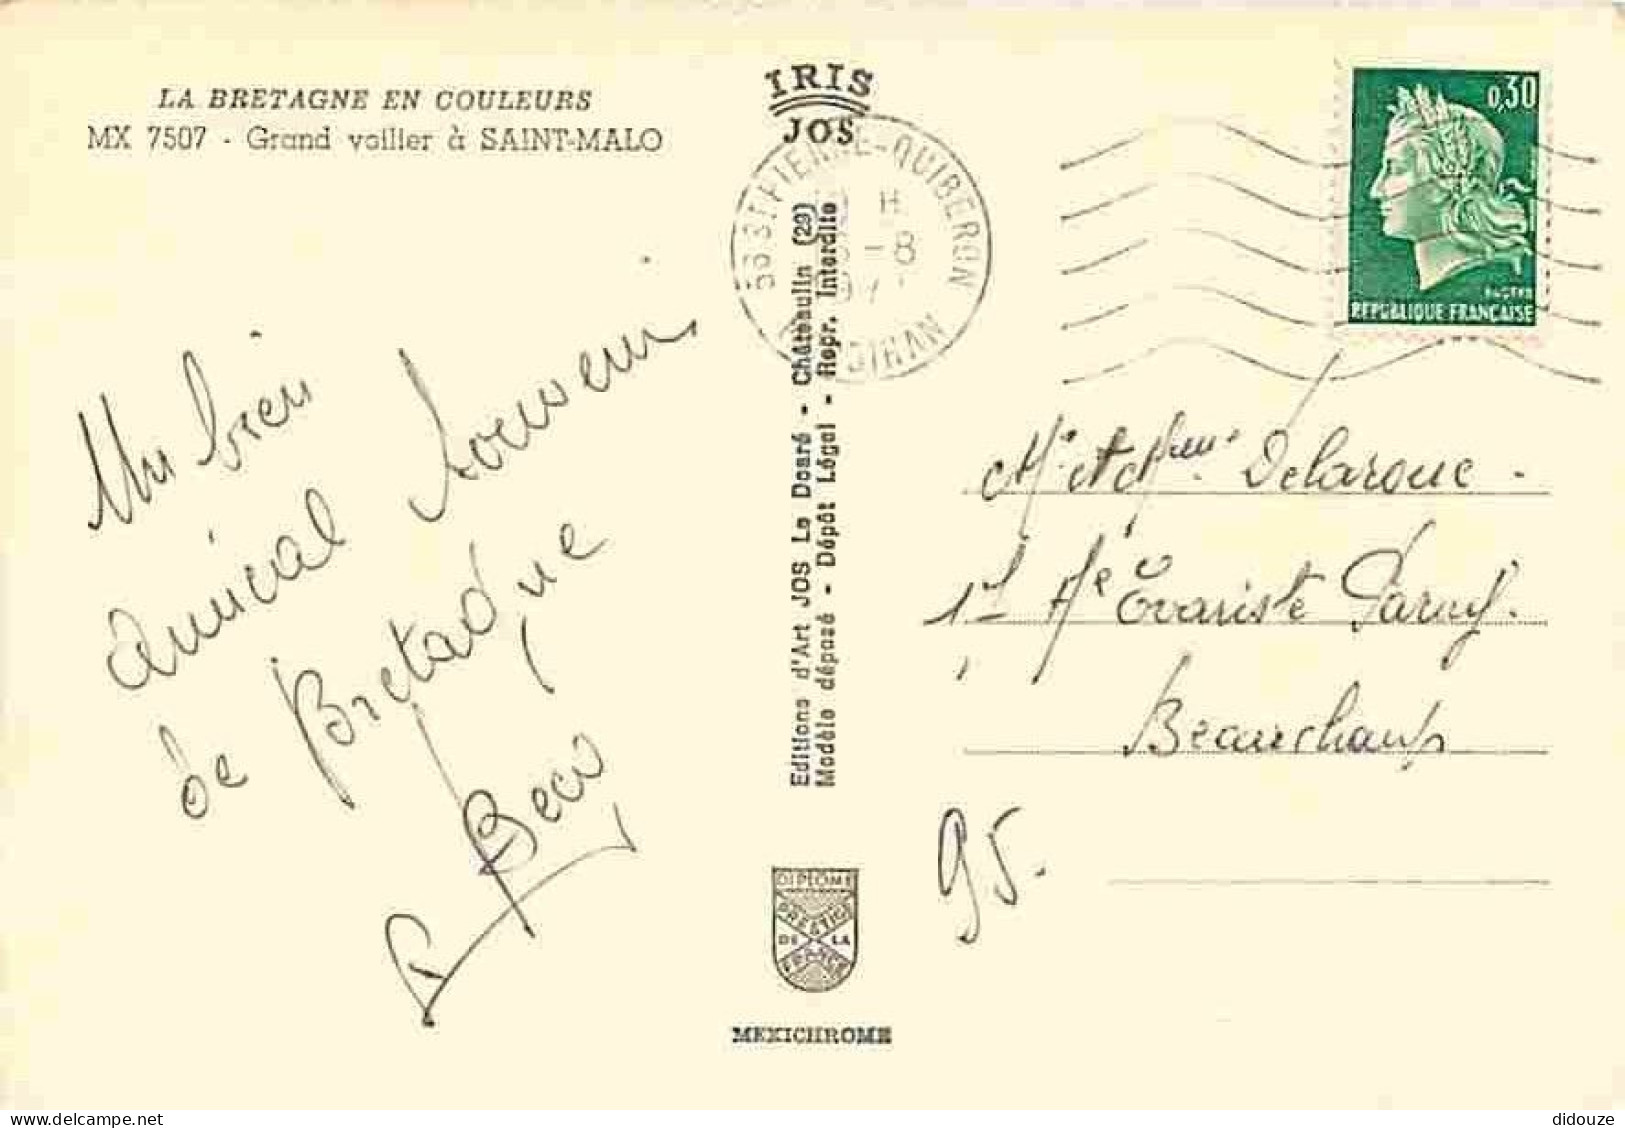 LA BRETAGNE EN COULEURS
MX 7507 - Grand voilier à SAINT-MALO
IRIS
JOS
56 ST PIERRE-QUIBERON
H
-8
0,30
REPUBLIQUE FRANÇAISE
Un bien
amical souvenir
de Bretagne
Editions d'Art JOS Le Doaré - Châteaulin (29)
Modèle déposé - Dépôt Légal - Repr. Interdite
Mr et Mme Delaroue.
Evariste Parny.
Beauchamp
95.
DIPLOME
PRESTIGE
DE LA
FRANCE
MEXICHROME
didouze